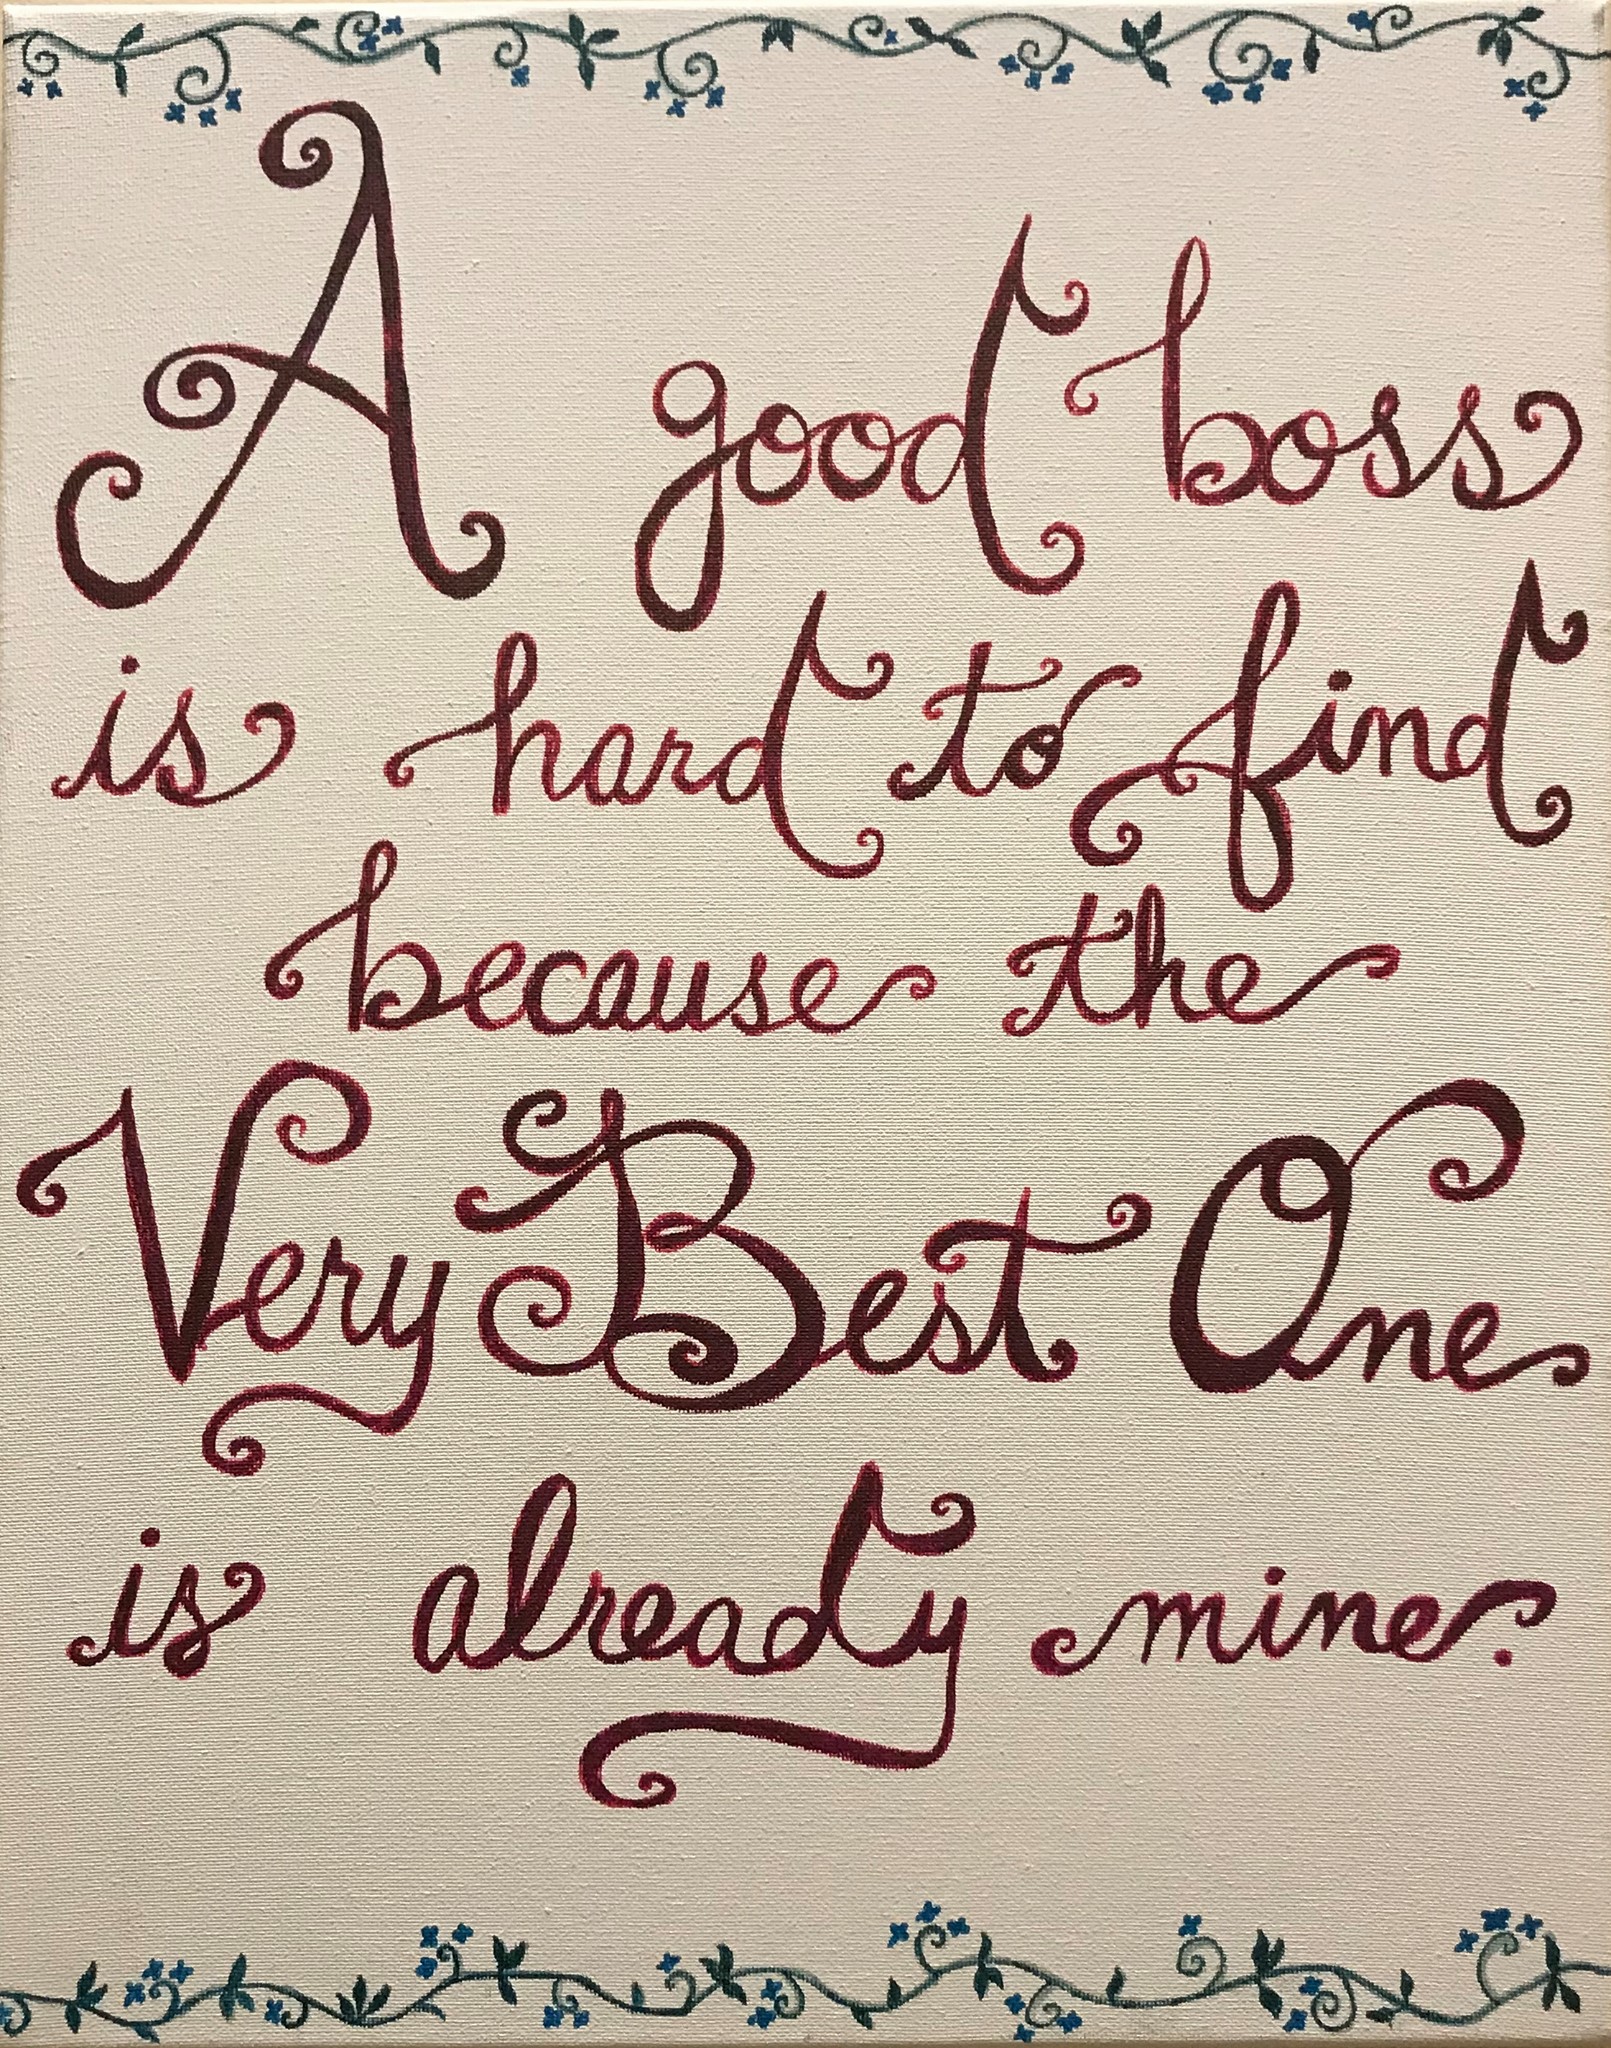 A good boss
is hard to find
because the
Very Best One
is already mine.